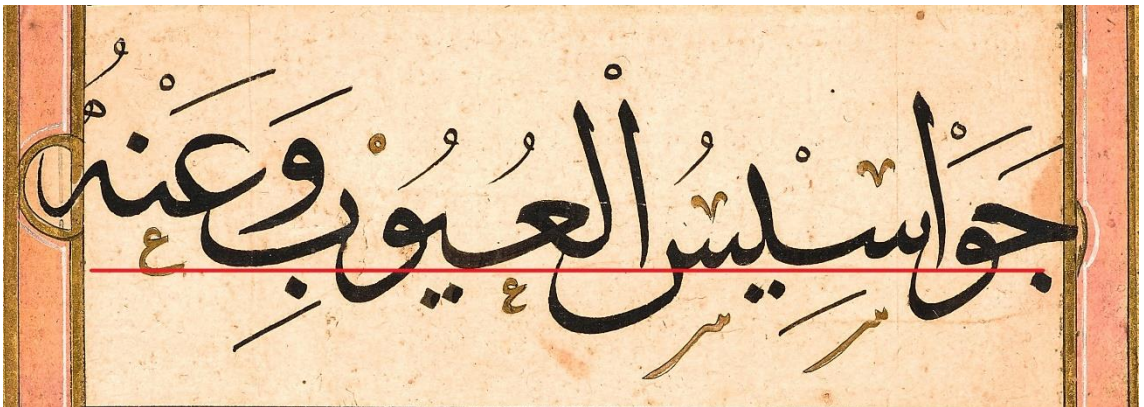 جَوَاسِيْسُ الْعُيُوْبِ وَعَنْهُ